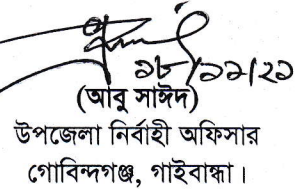 ১৮/১১/২১
(আবু সাঈদ)
উপজেলা নির্বাহী অফিসার
গোবিন্দগঞ্জ, গাইবান্ধা।